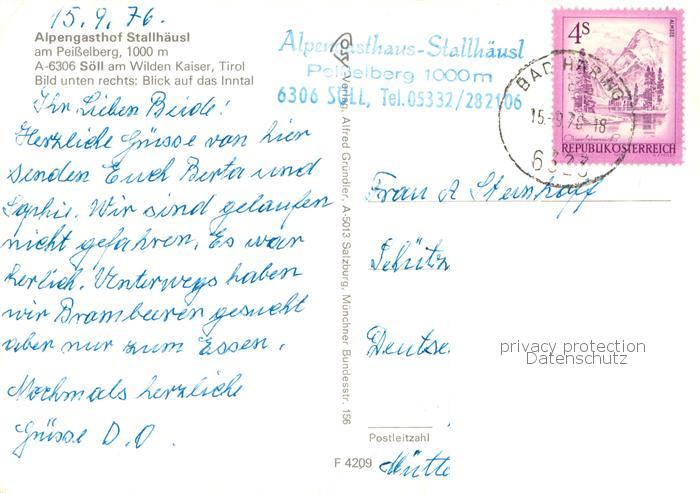 15.9.76.
Alpengasthof Stallhäusl
am Peißelberg, 1000 m
A-6306 Söll am Wilden Kaiser, Tirol
Bild unten rechts: Blick auf das Inntal
Ihr Lieben Beide!
Herzliche Grüsse von hier
senden Euch Berta und
Sophie. Wir sind gelaufen
nicht gefahren. Es war
herlich. Unterwegs haben
wir Brambeeren gesucht
aber nur zum Essen.
Nochmals herzliche
Grüsse D. O.
Verlag Alfred Gründler, A-5013 Salzburg, Münchner Bundesstr. 156
Alpengasthaus-Stallhäusl
Peißelberg 1000m
6306 SÖLL, Tel. 05332/282106
4S
ALMSEE
REPUBLIK ÖSTERREICH
BAD HÄRING
15.-9.76-18
6323
Frau A Steinhoff
Schütz
Deutsc
Postleitzahl
F 4209
Mütte
privacy protection
Datenschutz